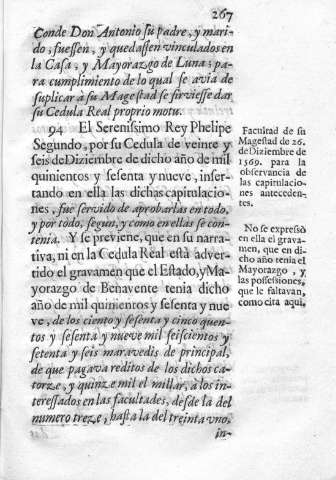 267
Conde Don Antonio su padre, y mari-
do, fuessen, y quedassen vinculados en
la Casa, y Mayorazgo de Luna; pa-
ra cumplimiento de lo qual se avia de
suplicar à su Magestad se sirviesse dar
su Cedula Real proprio motu.
94 El Serenissimo Rey Phelipe
Segundo, por su Cedula de veinte y
seis de Diziembre de dicho año de mil
quinientos y sesenta y nueve, inser-
tando en ella las dichas capitulacio-
nes, fue servido de aprobarlas en todo,
y por todo, segun, y como en ellas se con-
tenia. Y se previene, que en su narra-
tiva, ni en la Cedula Real està adver-
tido el gravamen que el Estado, y Ma-
yorazgo de Benavente tenia dicho
año de mil quinientos y sesenta y nue-
ve, de los ciento y sesenta y cinco quen-
tos y sesenta y nueve mil seiscientos y
setenta y seis maravedis de principal,
de que pagava reditos de los dichos ca-
torze, y quinze mil el millar, à los in-
teressados en las facultades, desde la del
numero treze, hasta la del treinta y uno,
in-
Facultad de su
Magestad de 26.
de Diziembre de
1569. para la
observancia de
las capitulacio-
nes anteceden-
tes.
No se expressò
en ella el grava-
men, que en di-
cho año tenia el
Mayorazgo, y
las possessiones,
que le faltavan,
como cita aqui.